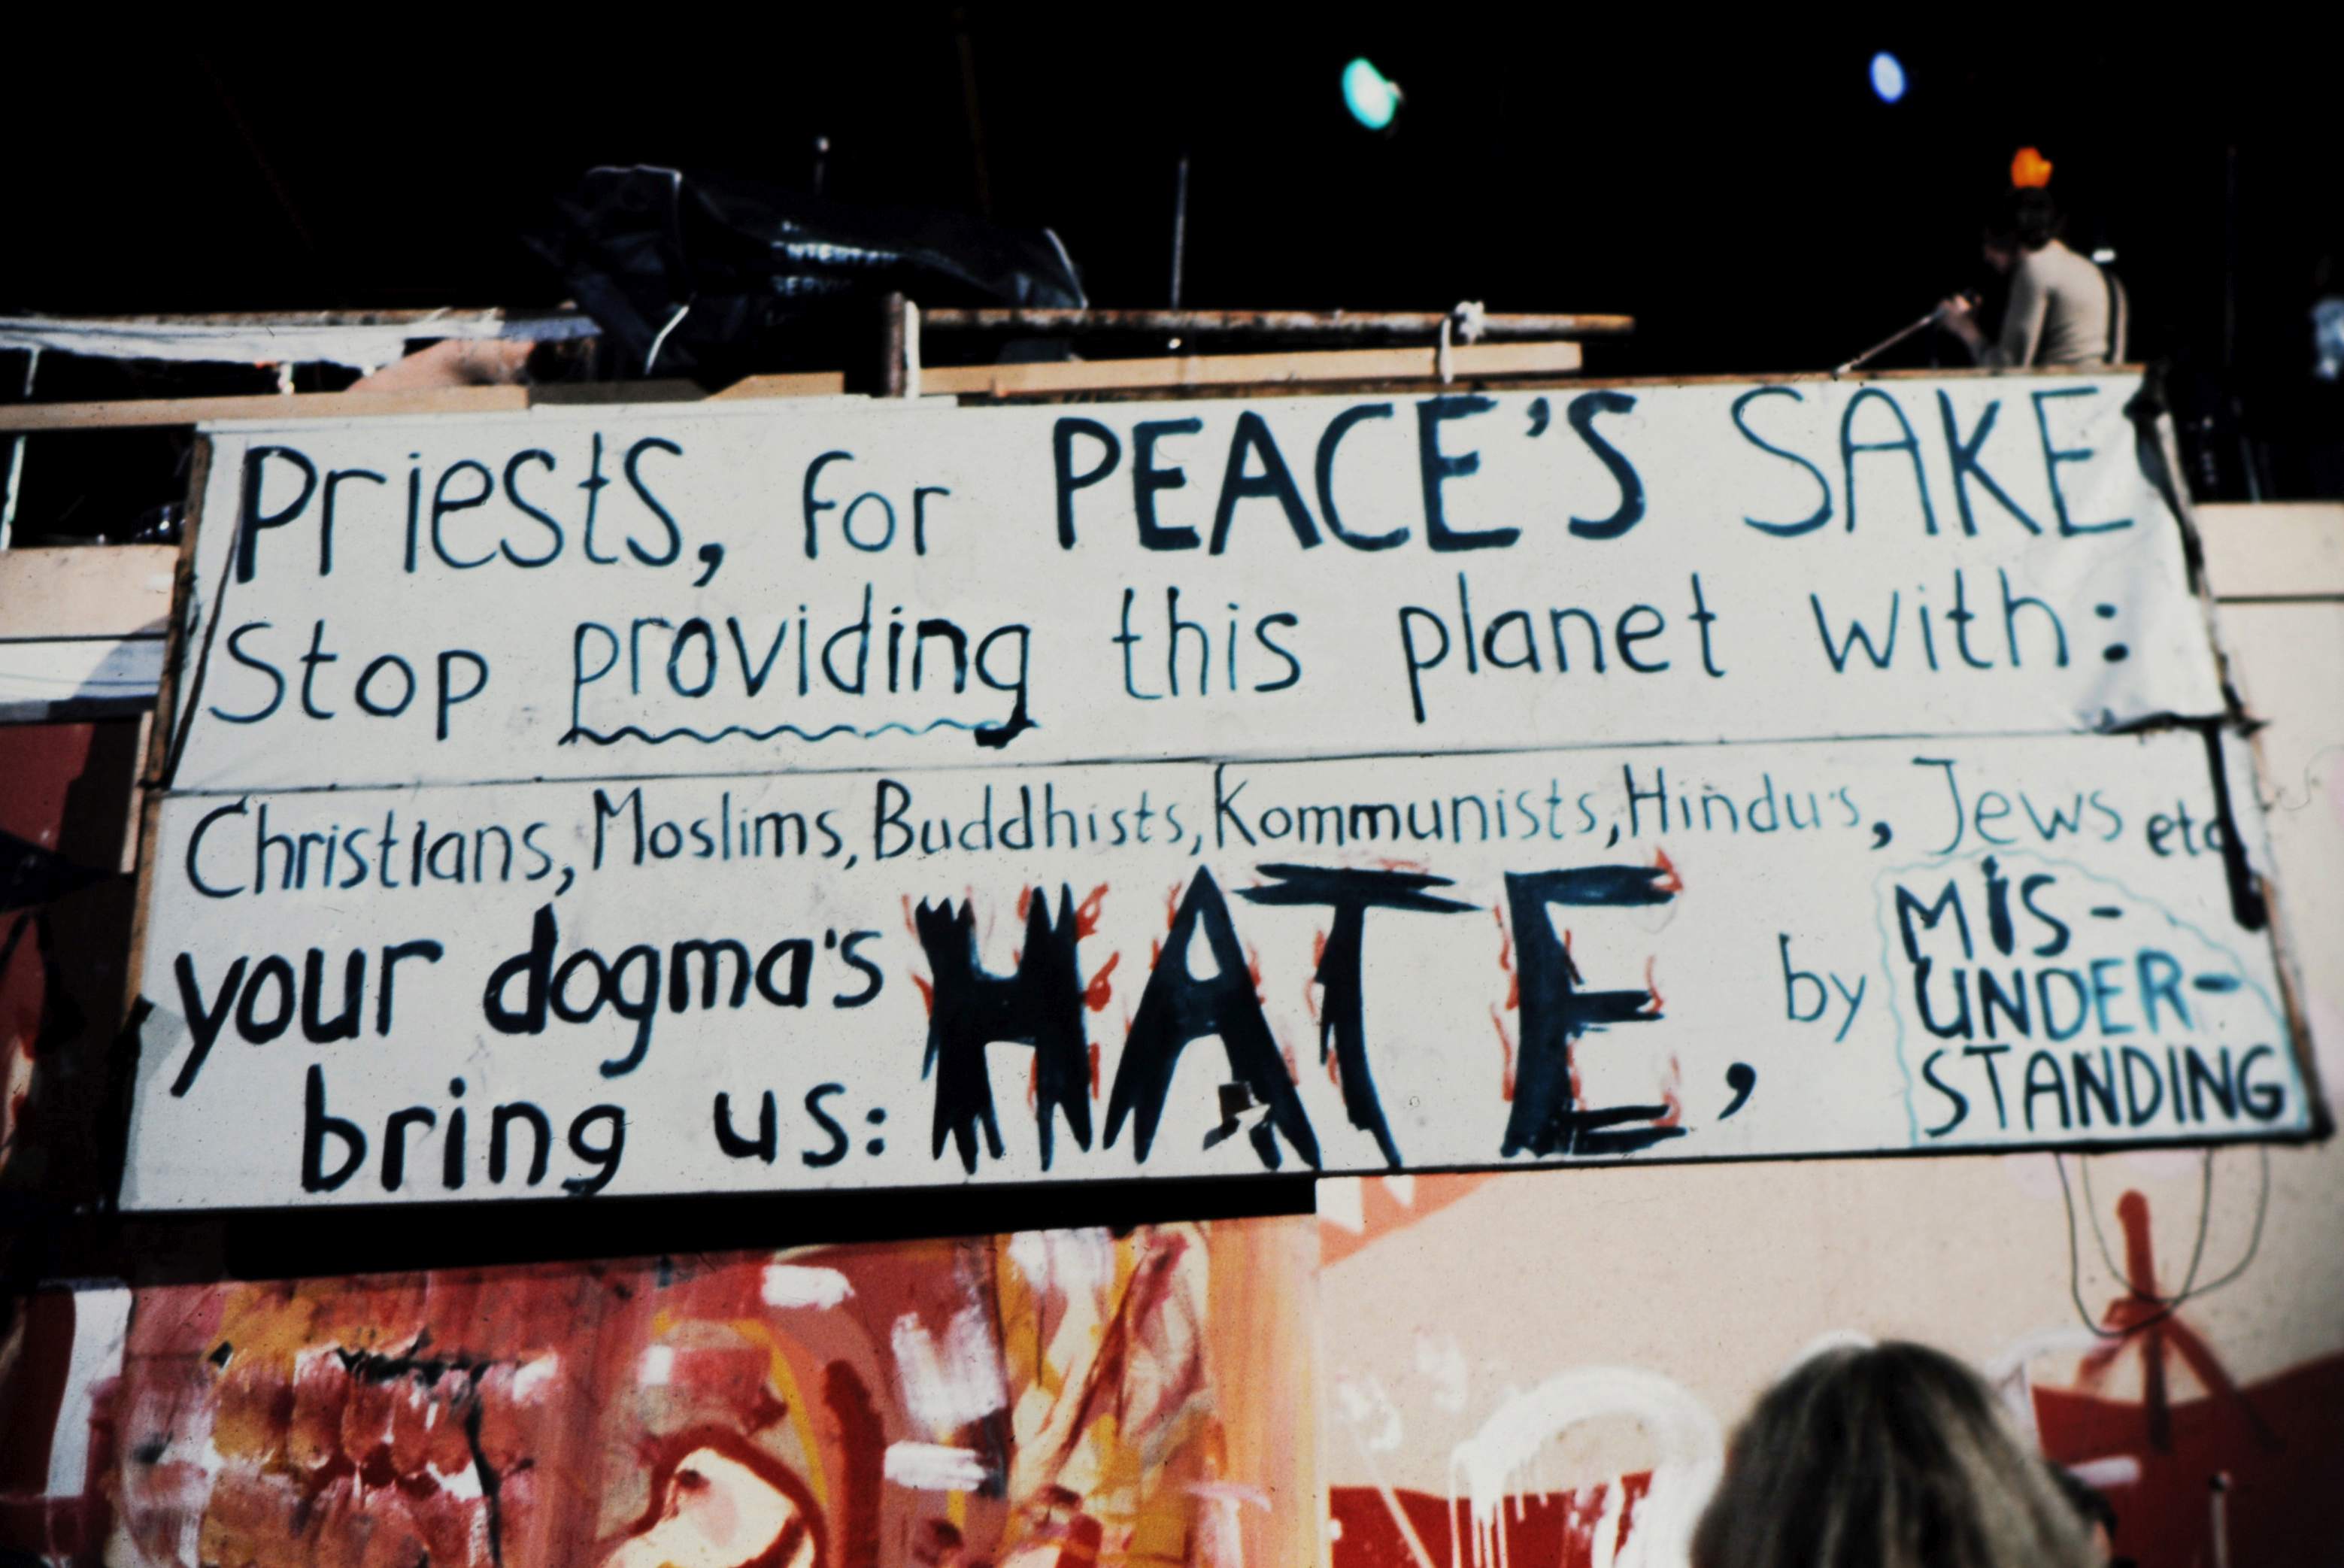 Priests, for PEACE'S SAKE
Stop providing this planet with:
Christians, Moslims, Buddhists, Kommunists, Hindu's, Jews etc
your dogma's HATE, by MIS-
UNDER-
STANDING
bring us: